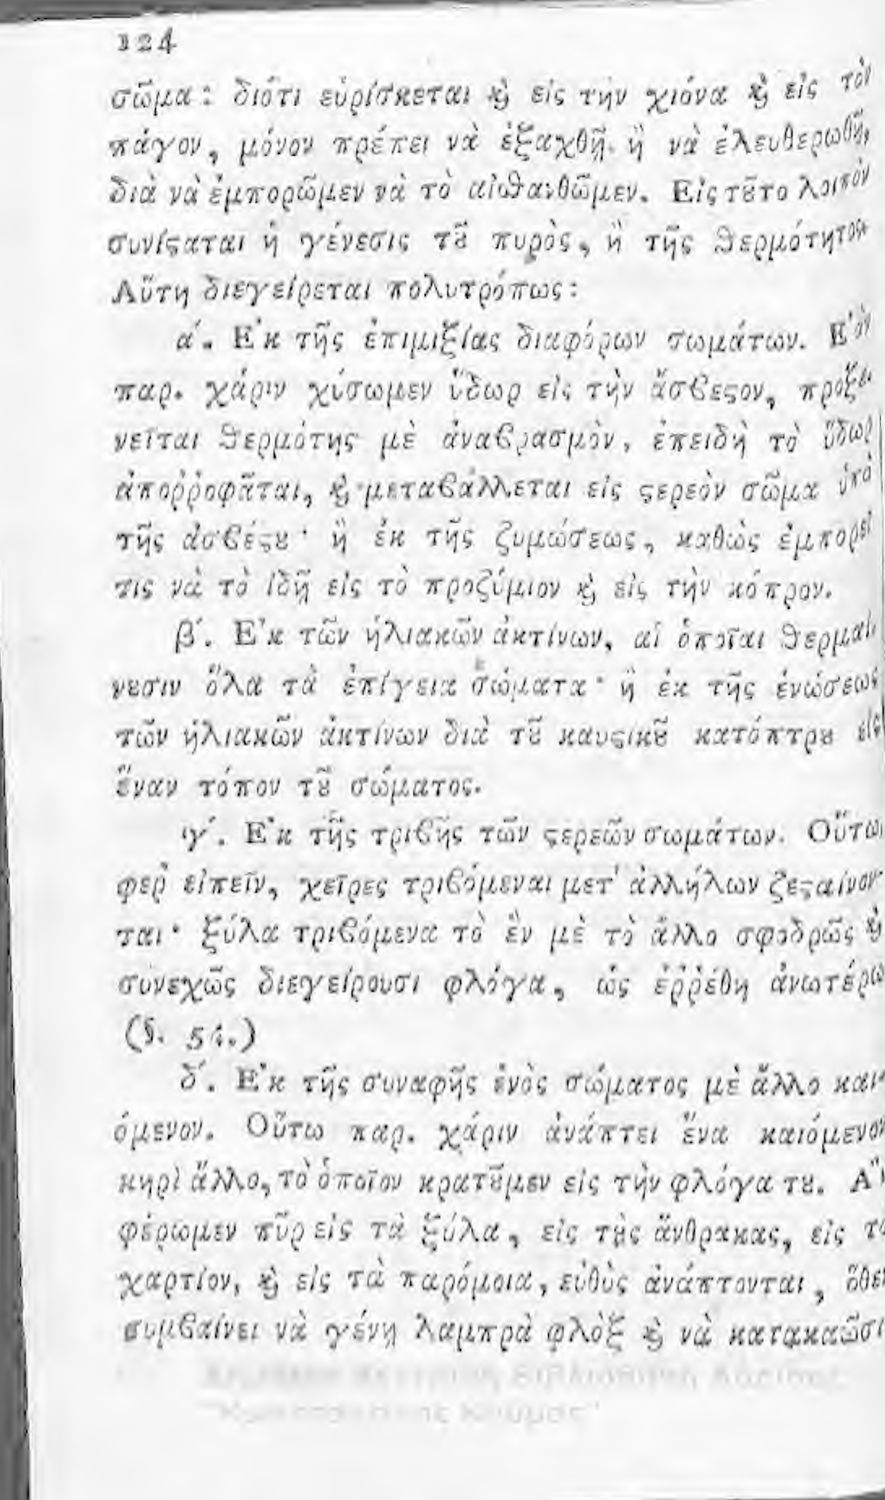 124
σῶμα: διότι εὑρίσκεται ϗ̀ εἰς τὴν χιόνα ϗ̀ εἰς τὸν
πάγον, μόνον πρέπει νὰ ἐξαχθῇ ἢ νὰ ἐλευθερωθῇ,
διὰ νὰ ἐμπορῶμεν νὰ τὸ αἰσθανθῶμεν. Εἰς τȣ͂το λοιπὸν
συνίϛαται ἡ γένεσις τȣ͂ πυρὸς, ἢ τῆς θερμότητος.
Αὕτη διεγείρεται πολυτρόπως:
α΄. Ἐκ τῆς ἐπιμιξίας διαφόρων σωμάτων. Ἐὰν
παρ. χάριν χύσωμεν ὕδωρ εἰς τὴν ἄσβεϛον, προξε-
νεῖται θερμότης μὲ ἀναβρασμὸν, ἐπειδὴ τὸ ὕδωρ
ἀποῤῥοφᾶται, ϗ̀ μεταβάλλεται εἰς ϛερεὸν σῶμα ὑπὸ
τῆς ἀσβέϛȣ· ἢ ἐκ τῆς ζυμώσεως, καθὼς ἐμπορεῖ
τις νὰ τὸ ἰδῇ εἰς τὸ προζύμιον ϗ̀ εἰς τὴν κόπρον.
β΄. Ἐκ τῶν ἡλιακῶν ἀκτίνων, αἱ ὁποῖαι θερμαί-
νȣσιν ὅλα τὰ ἐπίγεια σώματα· ἢ ἐκ τῆς ἑνώσεως
τῶν ἡλιακῶν ἀκτίνων διὰ τȣ͂ καυϛικȣ͂ κατόπτρȣ εἰς
ἕναν τόπον τȣ͂ σώματος.
γ΄. Ἐκ τῆς τριβῆς τῶν ϛερεῶν σωμάτων. Οὕτω
φερ' εἰπεῖν, χεῖρες τριβόμεναι μετ' ἀλλήλων ζεϛαίνον-
ται· ξύλα τριβόμενα τὸ ἓν μὲ τὸ ἄλλο σφοδρῶς ϗ̀
συνεχῶς διεγείρουσι φλόγα, ὡς ἐῤῥέθη ἀνωτέρω
(§. 54.)
δ΄. Ἐκ τῆς συναφῆς ἑνὸς σώματος μὲ ἄλλο και-
όμενον. Οὕτω παρ. χάριν ἀνάπτει ἕνα καιόμενον
κηρὶ ἄλλο, τὸ ὁποῖον κρατȣ͂μεν εἰς τὴν φλόγα τȣ. Ἂν
φέρωμεν πῦρ εἰς τὰ ξύλα, εἰς τȣ̀ς ἄνθρακας, εἰς τὸ
χαρτίον, ϗ̀ εἰς τὰ παρόμοια, εὐθὺς ἀνάπτονται, ὅθεν
συμβαίνει νὰ γένῃ λαμπρὰ φλὸξ ϗ̀ νὰ κατακαῶσι
Δημόσια Κεντρική Βιβλιοθήκη Κοζάνης